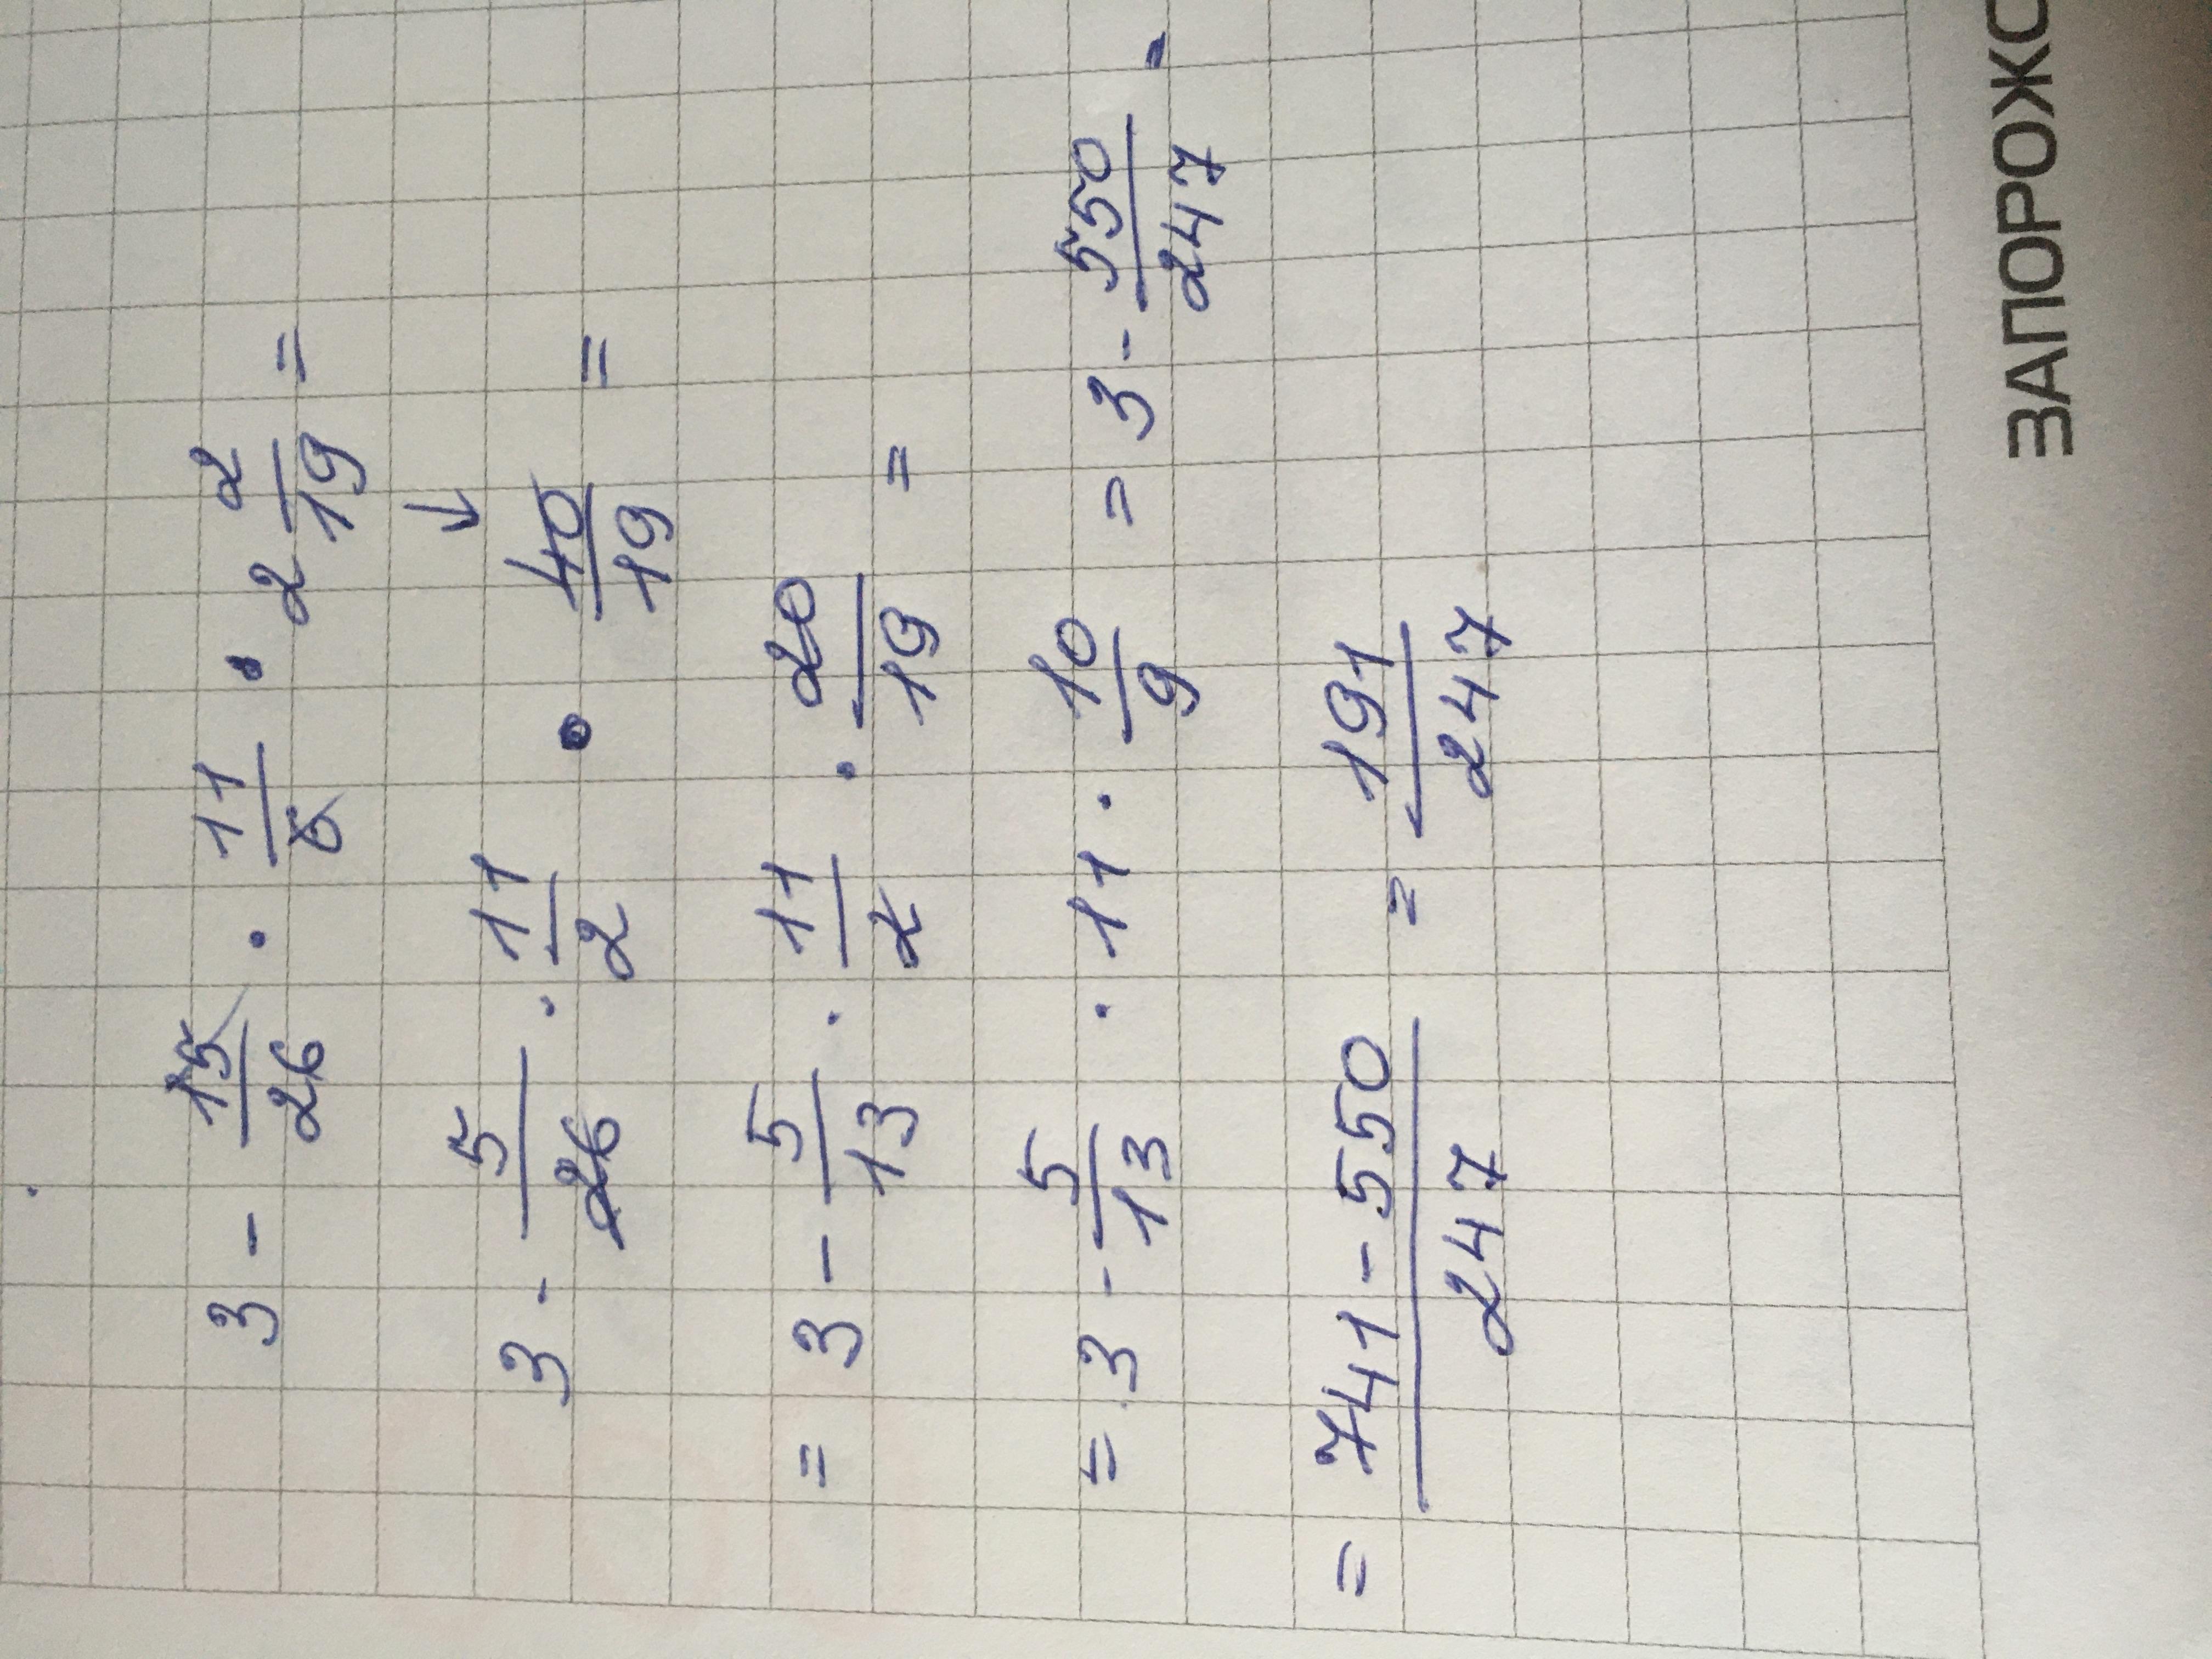 3 - 15/26 · 11/6 · 2 2/19 =
3 - 5/26 · 11/2 · 40/19 =
= 3 - 5/13 · 11/2 · 20/19 =
= 3 - 5/13 · 11 · 10/9 = 3 - 550/247 =
= 741 - 550/247 = 191/247
ЗАПОРОЖС